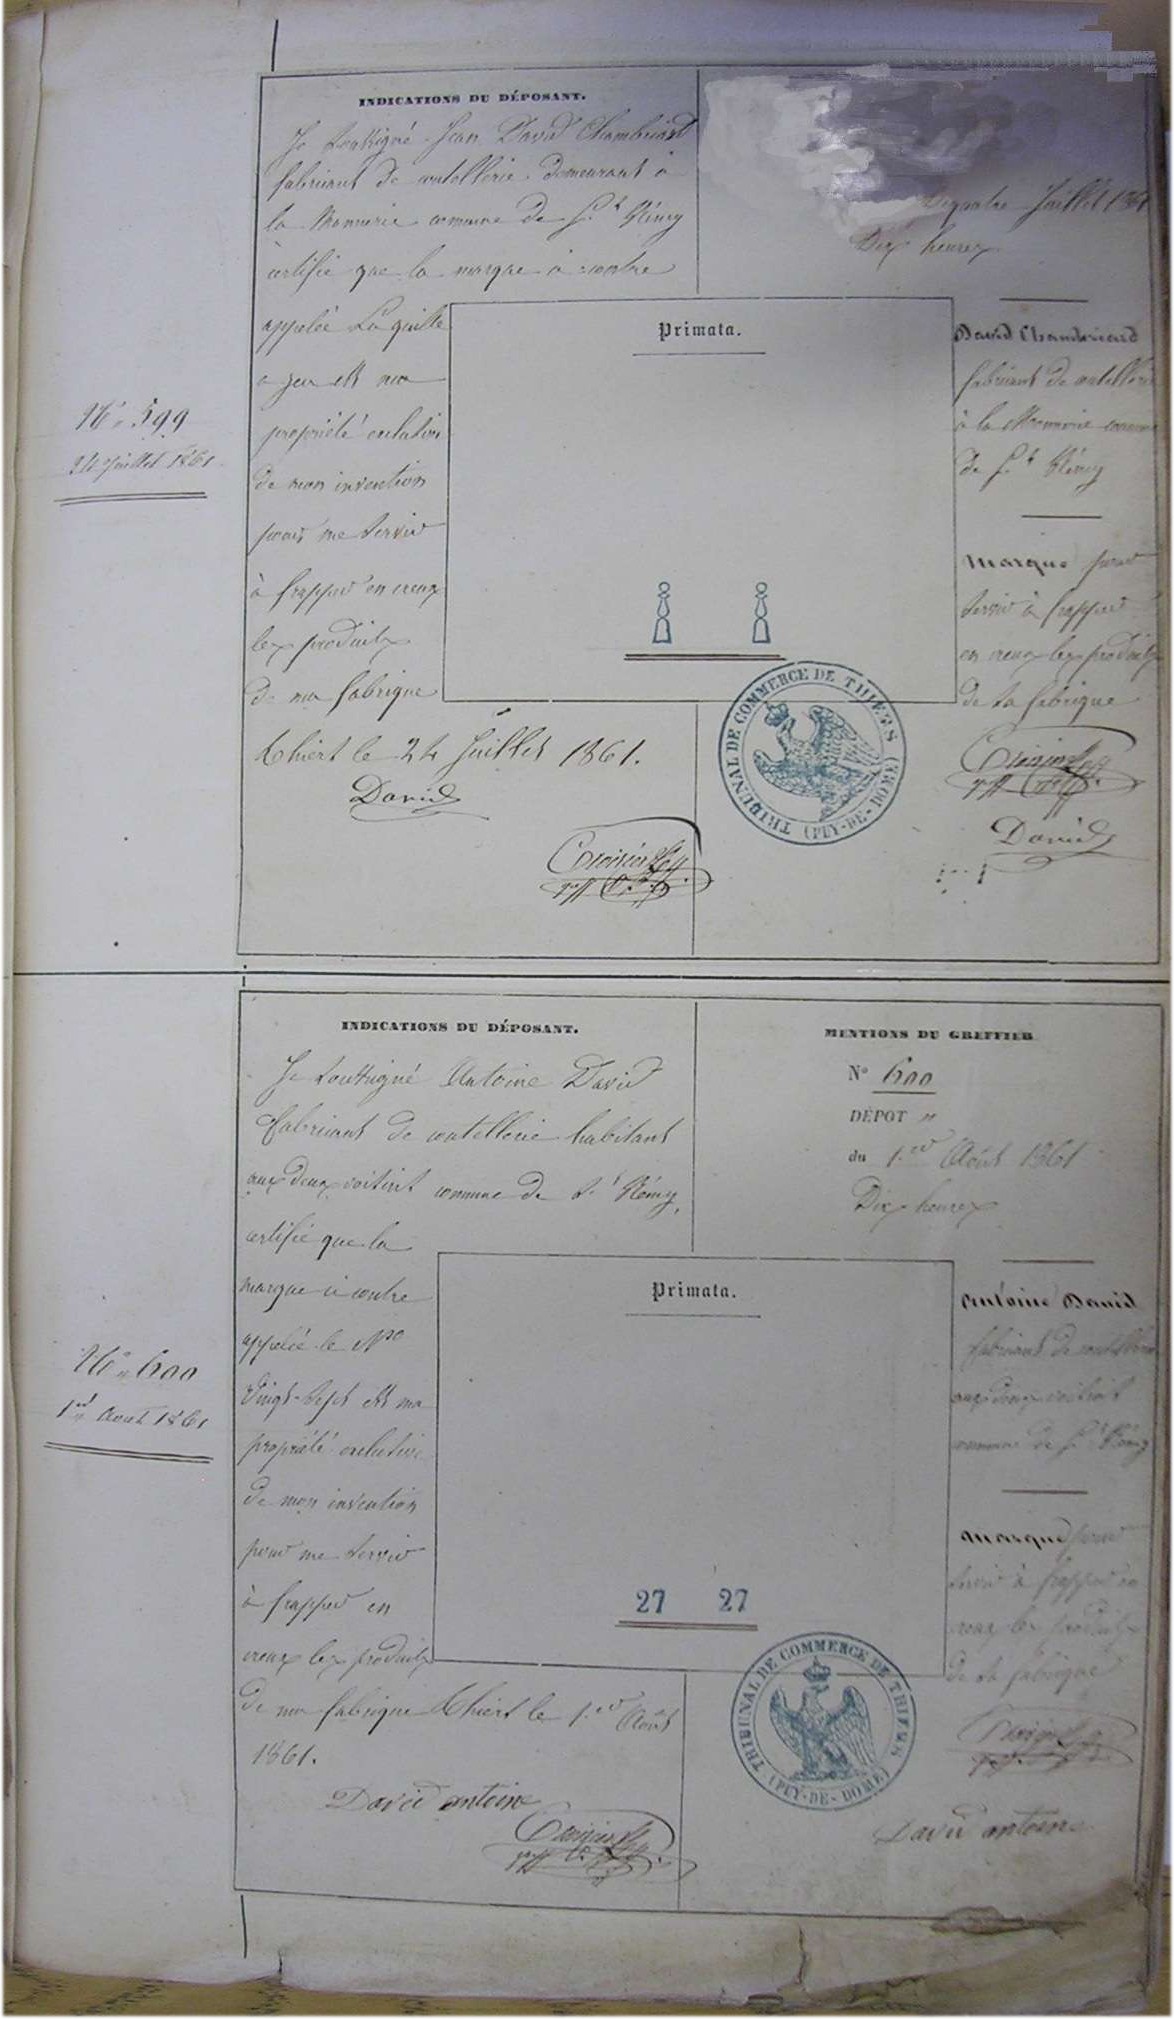 N° 599
24 Juillet 1861
INDICATIONS DU DÉPOSANT.
Je soussigné Jean David Chambriard
fabricant de coutellerie demeurant à
la Monnerie comune de S.t Rémy
certifie que la marque ci contre
appelée La quille
à jeu est ma
propriété exclusive
de mon invention
pour me servir
à frapper en creux
les produits
de ma fabrique
Thiers le 24 Juillet 1861.
David
Primata.
quatre Juillet 1861
Dix heures
David Chambriard
fabricant de coutellerie
à la Monnerie comune
de S.t Rémy
Marque pour
servir à frapper
en creux les produits
de sa fabrique
David
TRIBUNAL DE COMMERCE DE THIERS (PUY-DE-DOME)
N° 600
1er Aout 1861
INDICATIONS DU DÉPOSANT.
Je soussigné Antoine David
fabricant de coutellerie habitant
aux deux commune de St Rémy,
certifie que la
marque ci contre
appelée le No
Vingt-sept est ma
propriété exclusive
de mon invention
pour me servir
à frapper en
creux les produits
de ma fabrique Thiers le 1.er Août
1861.
David antoine
Primata.
27 27
MENTIONS DU GREFFIER
N° 600
DÉPOT "
du 1.er Août 1861
Dix heures
Antoine David
fabricant de coutellerie
aux deux
commune de S.t Rémy
Marque pour
servir à frapper en
creux les produits
de sa fabrique
David antoine
TRIBUNAL DE COMMERCE DE THIERS (PUY-DE-DOME)